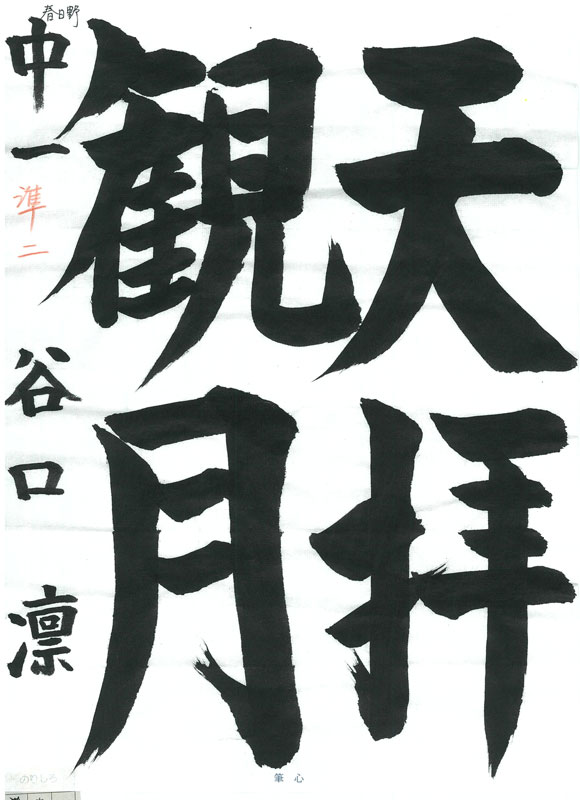 天拝
観月
春日野
中一 準二 谷口 凛
筆心